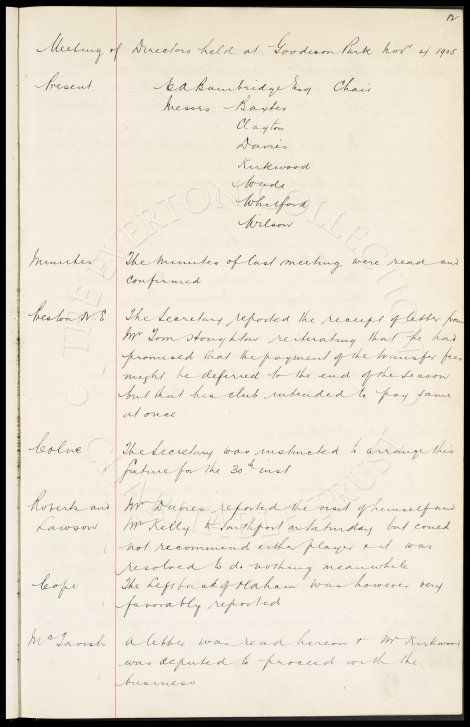 Meeting of Directors held at Goodison Park Nov 4 1908
Present E A Bainbridge Esq Chair
Messrs Baxter
Clayton
Davies
Kirkwood
Wade
Whitford
Wilson
Minutes The Minutes of last meeting were read and
confirmed
Preston N E The Secretary reported the receipt of letter from
Mr Tom Houghton reiterating that he had
promised that the payment of the transfer fees
might be deferred to the end of the season
but that his club intended to pay same
at once
Colne The Secretary was instructed to arrange this
fixture for the 30th inst
Roberts and Mr Davies reported the visit of himself and
Lawson Mr Kelly to Southport on Saturday but could
not recommend either player & it was
resolved to do nothing meanwhile
Cope The Left back of Oldham was however very
favorably reported
McTavish A letter was read hereon & Mr Kirkwood
was deputed to proceed with the
business
THE EVERTON COLLECTION
CHARITABLE TRUST